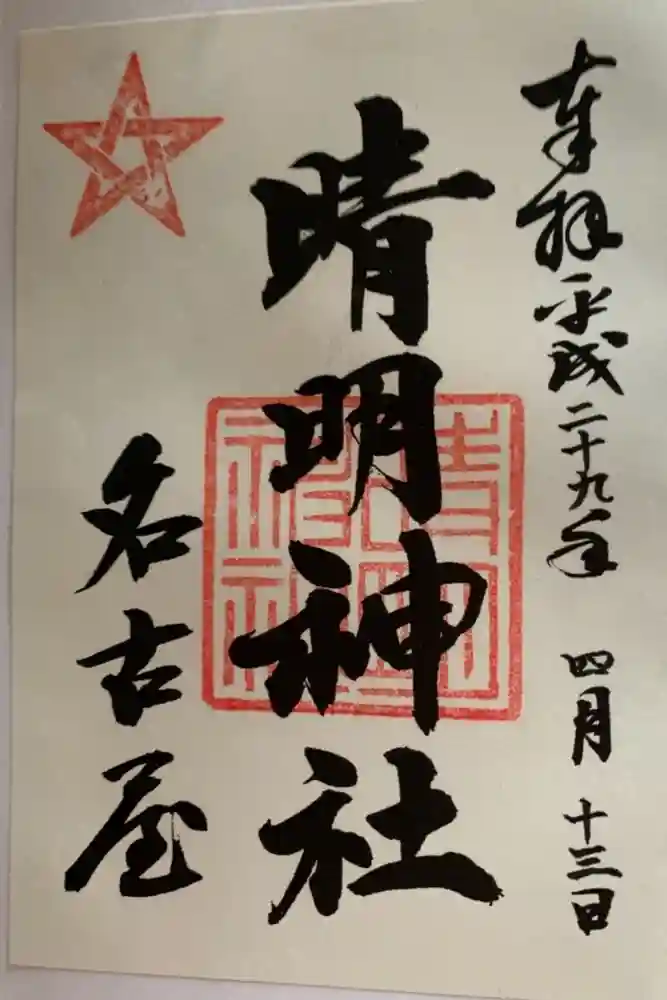 奉拝平成二十九年 四月 十三日
晴明神社
晴明神社
名古屋